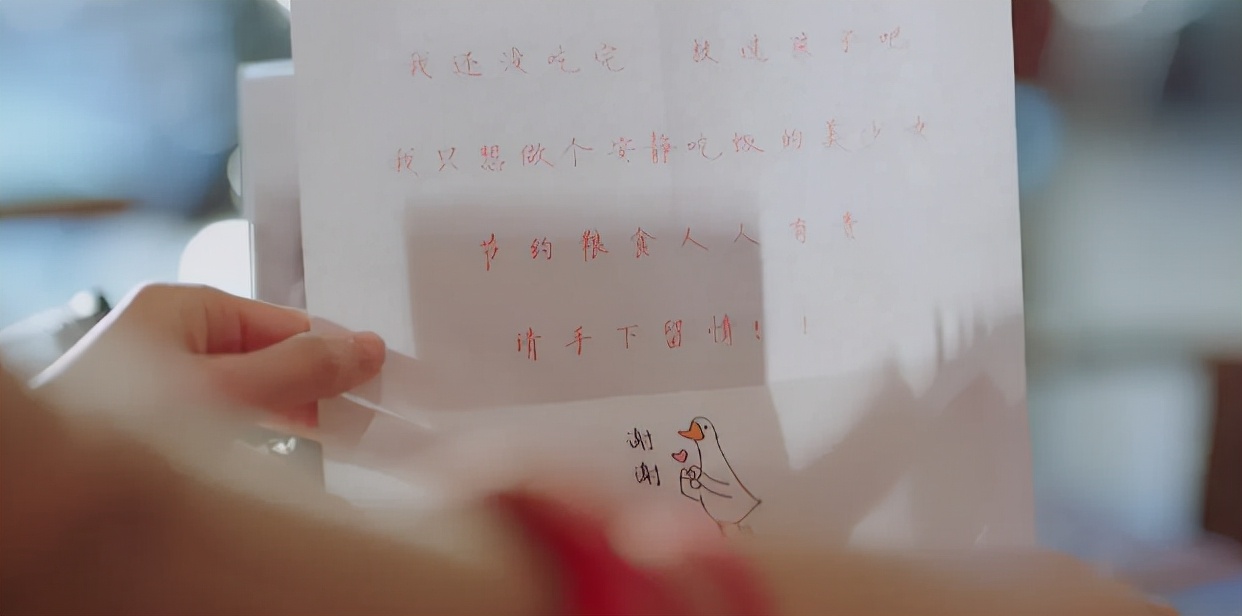 我还没吃完 放过孩子吧
我只想做个安静吃饭的美少女
节约粮食人人有责
请手下留情!!
谢
谢